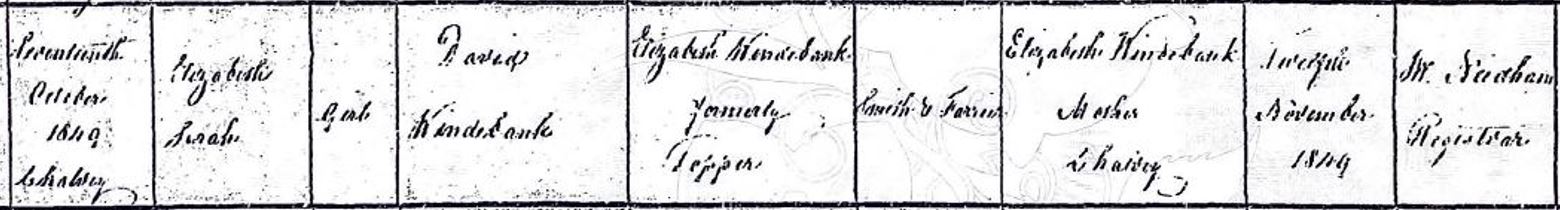 Seventeenth
October
1849
Chalvey
Elizabeth
Sarah
Girl
David
Windebank
Elizabeth Windebank
formerly
Topper
Smith & Farrier
Elizabeth Windebank
Mother
Chalvey
Twelfth
November
1849
W. Needham
Registrar